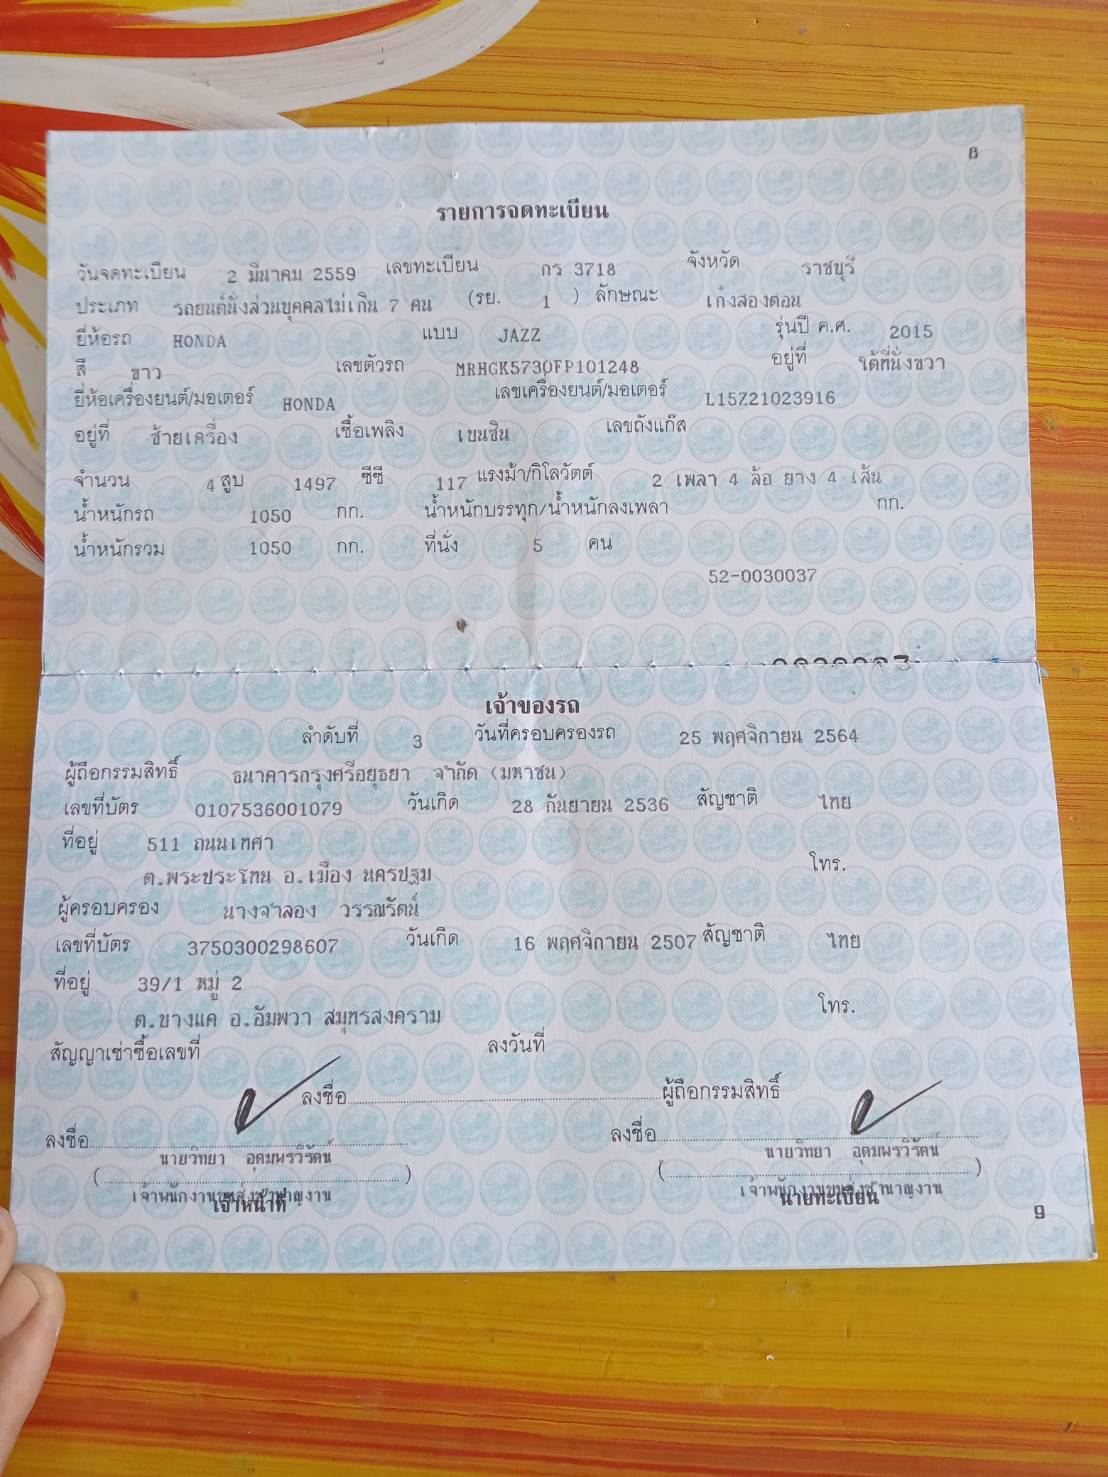 8
รายการจดทะเบียน
วันจดทะเบียน 2 มีนาคม 2559 เลขทะเบียน กร 3718 จังหวัด ราชบุรี
ประเภท รถยนต์นั่งส่วนบุคคลไม่เกิน 7 คน (รย. 1 ) ลักษณะ เก๋งสองตอน
ยี่ห้อรถ HONDA แบบ JAZZ รุ่นปี ค.ศ. 2015
สี ขาว เลขตัวรถ MRHGK5730FP101248 อยู่ที่ ใต้ที่นั่งขวา
ยี่ห้อเครื่องยนต์/มอเตอร์ HONDA เลขเครื่องยนต์/มอเตอร์ L15Z21023916
อยู่ที่ ซ้ายเครื่อง เชื้อเพลิง เบนซิน เลขถังแก๊ส
จำนวน 4 สูบ 1497 ซีซี 117 แรงม้า/กิโลวัตต์ 2 เพลา 4 ล้อ ยาง 4 เส้น
น้ำหนักรถ 1050 กก. น้ำหนักบรรทุก/น้ำหนักลงเพลา กก.
น้ำหนักรวม 1050 กก. ที่นั่ง 5 คน
52-0030037
เจ้าของรถ
ลำดับที่ 3 วันที่ครอบครองรถ 25 พฤศจิกายน 2564
ผู้ถือกรรมสิทธิ์ ธนาคารกรุงศรีอยุธยา จำกัด (มหาชน)
เลขที่บัตร 0107536001079 วันเกิด 28 กันยายน 2536 สัญชาติ ไทย
ที่อยู่ 511 ถนนเทศา
ต.พระประโทน อ.เมือง นครปฐม โทร.
ผู้ครอบครอง นางจำลอง วรรณรัตน์
เลขที่บัตร 3750300298607 วันเกิด 16 พฤศจิกายน 2507 สัญชาติ ไทย
ที่อยู่ 39/1 หมู่ 2
ต.บางแค อ.อัมพวา สมุทรสงคราม โทร.
สัญญาเช่าซื้อเลขที่ ลงวันที่
ลงชื่อ ผู้ถือกรรมสิทธิ์
ลงชื่อ ลงชื่อ
(นายวิทยา อุดมพรวิรัตน์) (นายวิทยา อุดมพรวิรัตน์)
เจ้าพนักงานขนส่งชำนาญงาน เจ้าพนักงานขนส่งชำนาญงาน
เจ้าหน้าที่ นายทะเบียน
9